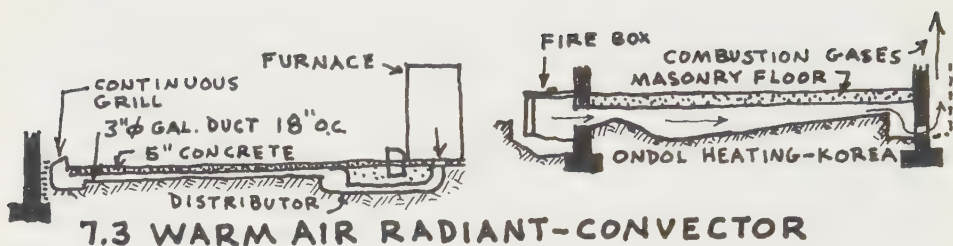 FURNACE
CONTINUOUS
GRILL
3"φ GAL. DUCT 18" O.C.
5" CONCRETE
DISTRIBUTOR
FIRE BOX
COMBUSTION GASES
MASONRY FLOOR
ONDOL HEATING-KOREA
7.3 WARM AIR RADIANT-CONVECTOR